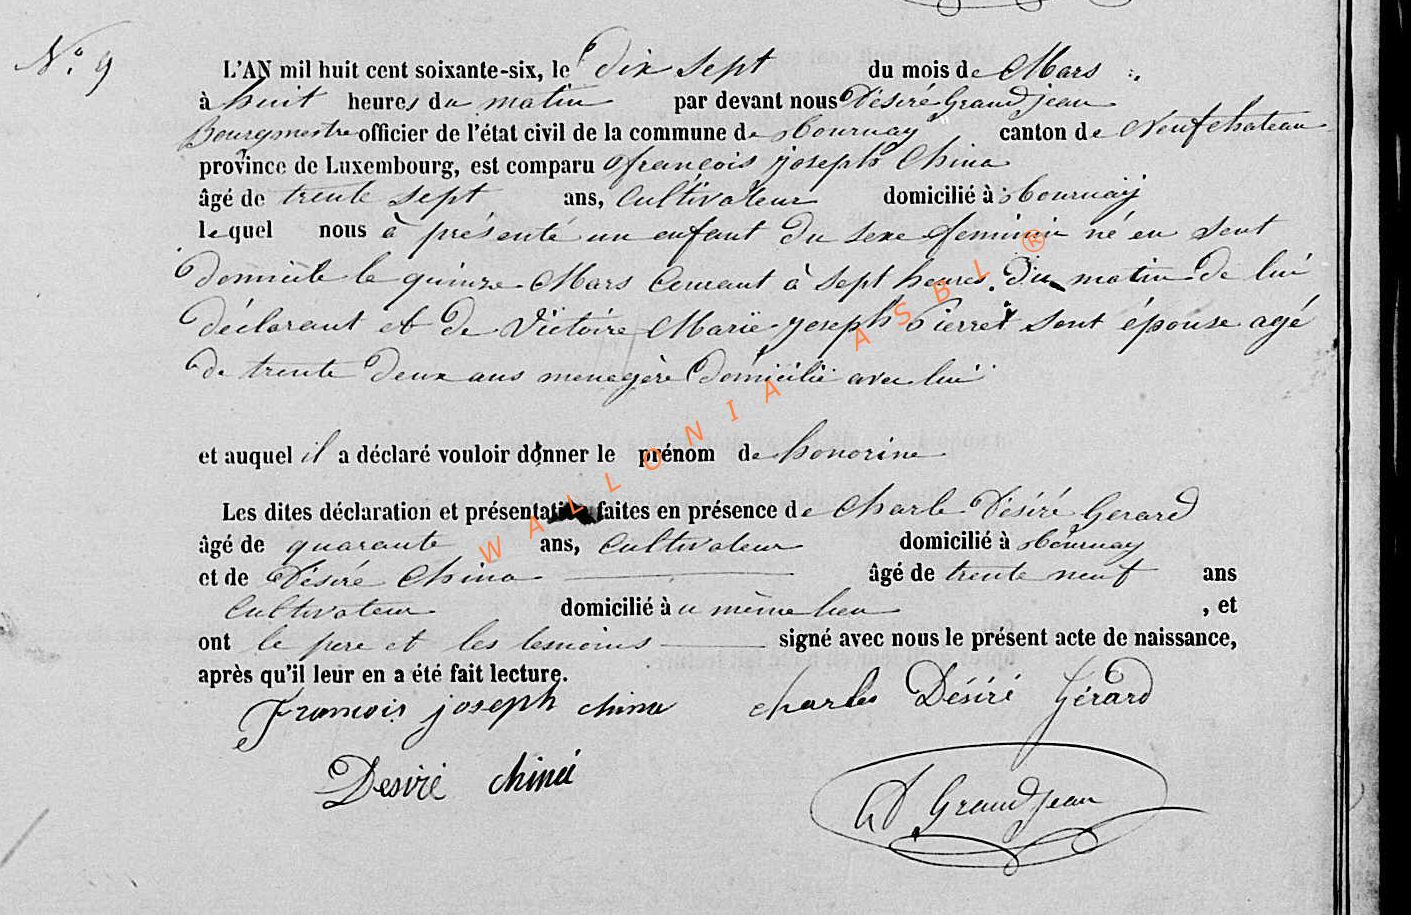 N° 9
L'AN mil huit cent soixante-six, le dix sept du mois de Mars
à huit heures du matin par devant nous Désiré Grandjean
Bourgmestre officier de l'état civil de la commune de Tournay canton de Neufchateau
province de Luxembourg, est comparu françois joseph China
âgé de trente sept ans, Cultivateur domicilié à Tournay
lequel nous à présenté un enfant du sexe feminin né en sont
domicile le quinze Mars Courant à sept heures du matin de lui
déclarant et de Victoire Marie joseph Pierret sont épouse agé
de trente deux ans menagère domicilié avec lui
et auquel il a déclaré vouloir donner le prénom de honorine
Les dites déclaration et présentation faites en présence de Charle Désiré Gerard
âgé de quarante ans, Cultivateur domicilié à Tournay
et de Désiré China âgé de trente neuf ans
Cultivateur domicilié à u même lieu , et
ont le pere et les temoins signé avec nous le présent acte de naissance,
après qu'il leur en a été fait lecture.
François joseph china charles Désiré Gérard
Desiré chiná
D Grandjean
WALLONIA ASBL ®